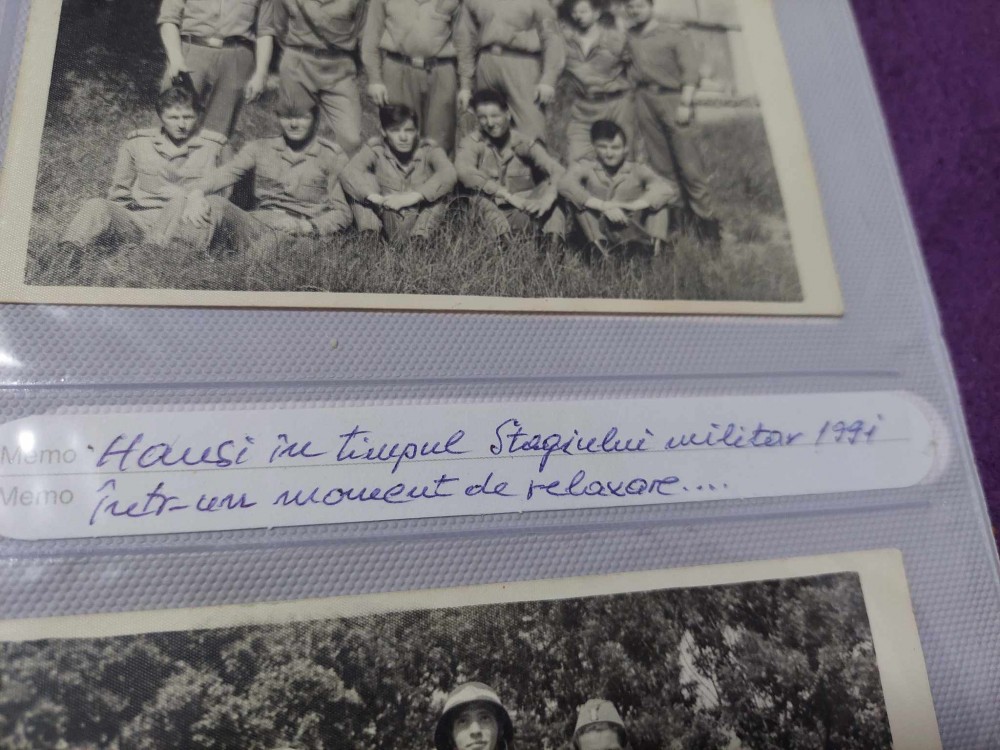 Memo Hansi în timpul Stagiului militar 1991
Memo într-un moment de relaxare....